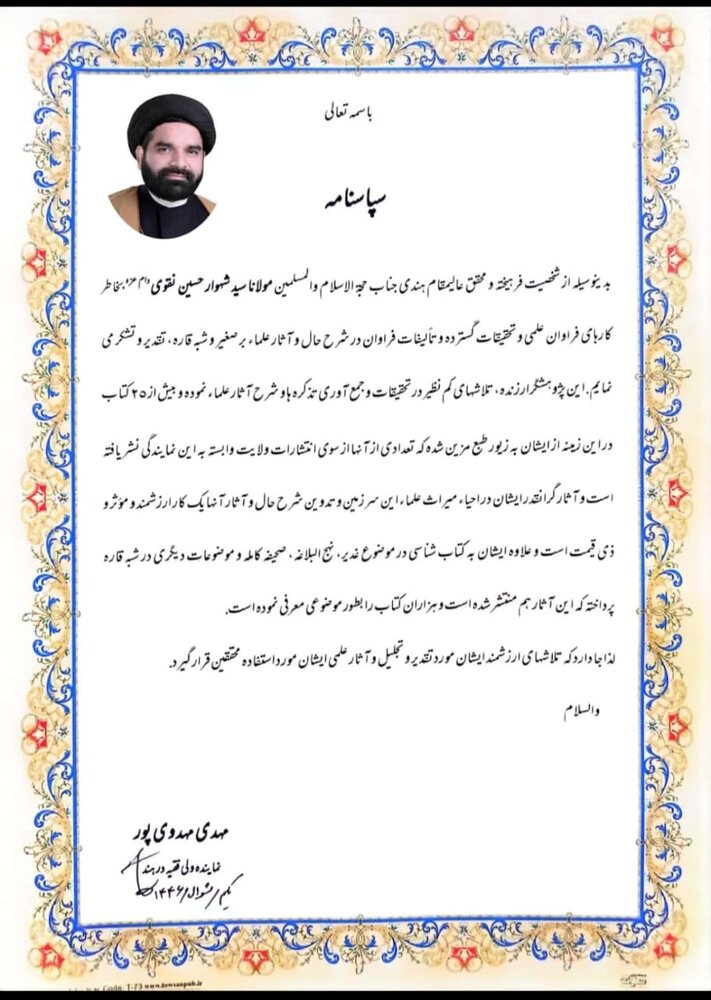 باسمه تعالی
سپاسنامه
بدینوسیله از شخصیت فرهیخته و محقق عالیمقام هندی جناب حجة الاسلام والمسلمین مولانا سید شهوار حسین نقوی "دام عزه" بخاطر
کارهای فراوان علمی و تحقیقات گسترده و تألیفات فراوان در شرح حال و آثار علماء بر صغیر و شبه قاره، تقدیر و تشکر می
نمایم. این پژوهشگر ارزنده، تلاشهای کم نظیر در تحقیقات و جمع آوری تذکره ها و شرح آثار علماء نموده و بیش از ۲۵ کتاب
در این زمینه از ایشان به زیور طبع مزین شده که تعدادی از آنها از سوی انتشارات ولایت وابسته به این نمایندگی نشر یافته
است و آثار گرانقدر ایشان در احیاء میراث علماء این سرزمین و تدوین شرح حال و آثار آنها یک کار ارزشمند و مؤثر و
ذی قیمت است و علاوه ایشان به کتاب شناسی در موضوع غدیر، نهج البلاغه، صحیفه کامله و موضوعات دیگری در شبه قاره
پرداخته که این آثار هم منتشر شده است و هزاران کتاب را بطور موضوعی معرفی نموده است.
لذا جا دارد که تلاشهای ارزشمند ایشان مورد تقدیر و تجلیل و آثار علمی ایشان مورد استفاده محققین قرار گیرد.
والسلام
مهدی مهدوی پور
نماینده ولی فقیه در هند
یکم/شوال/۱۴۴۶
T-75 www.towsanpub.ir